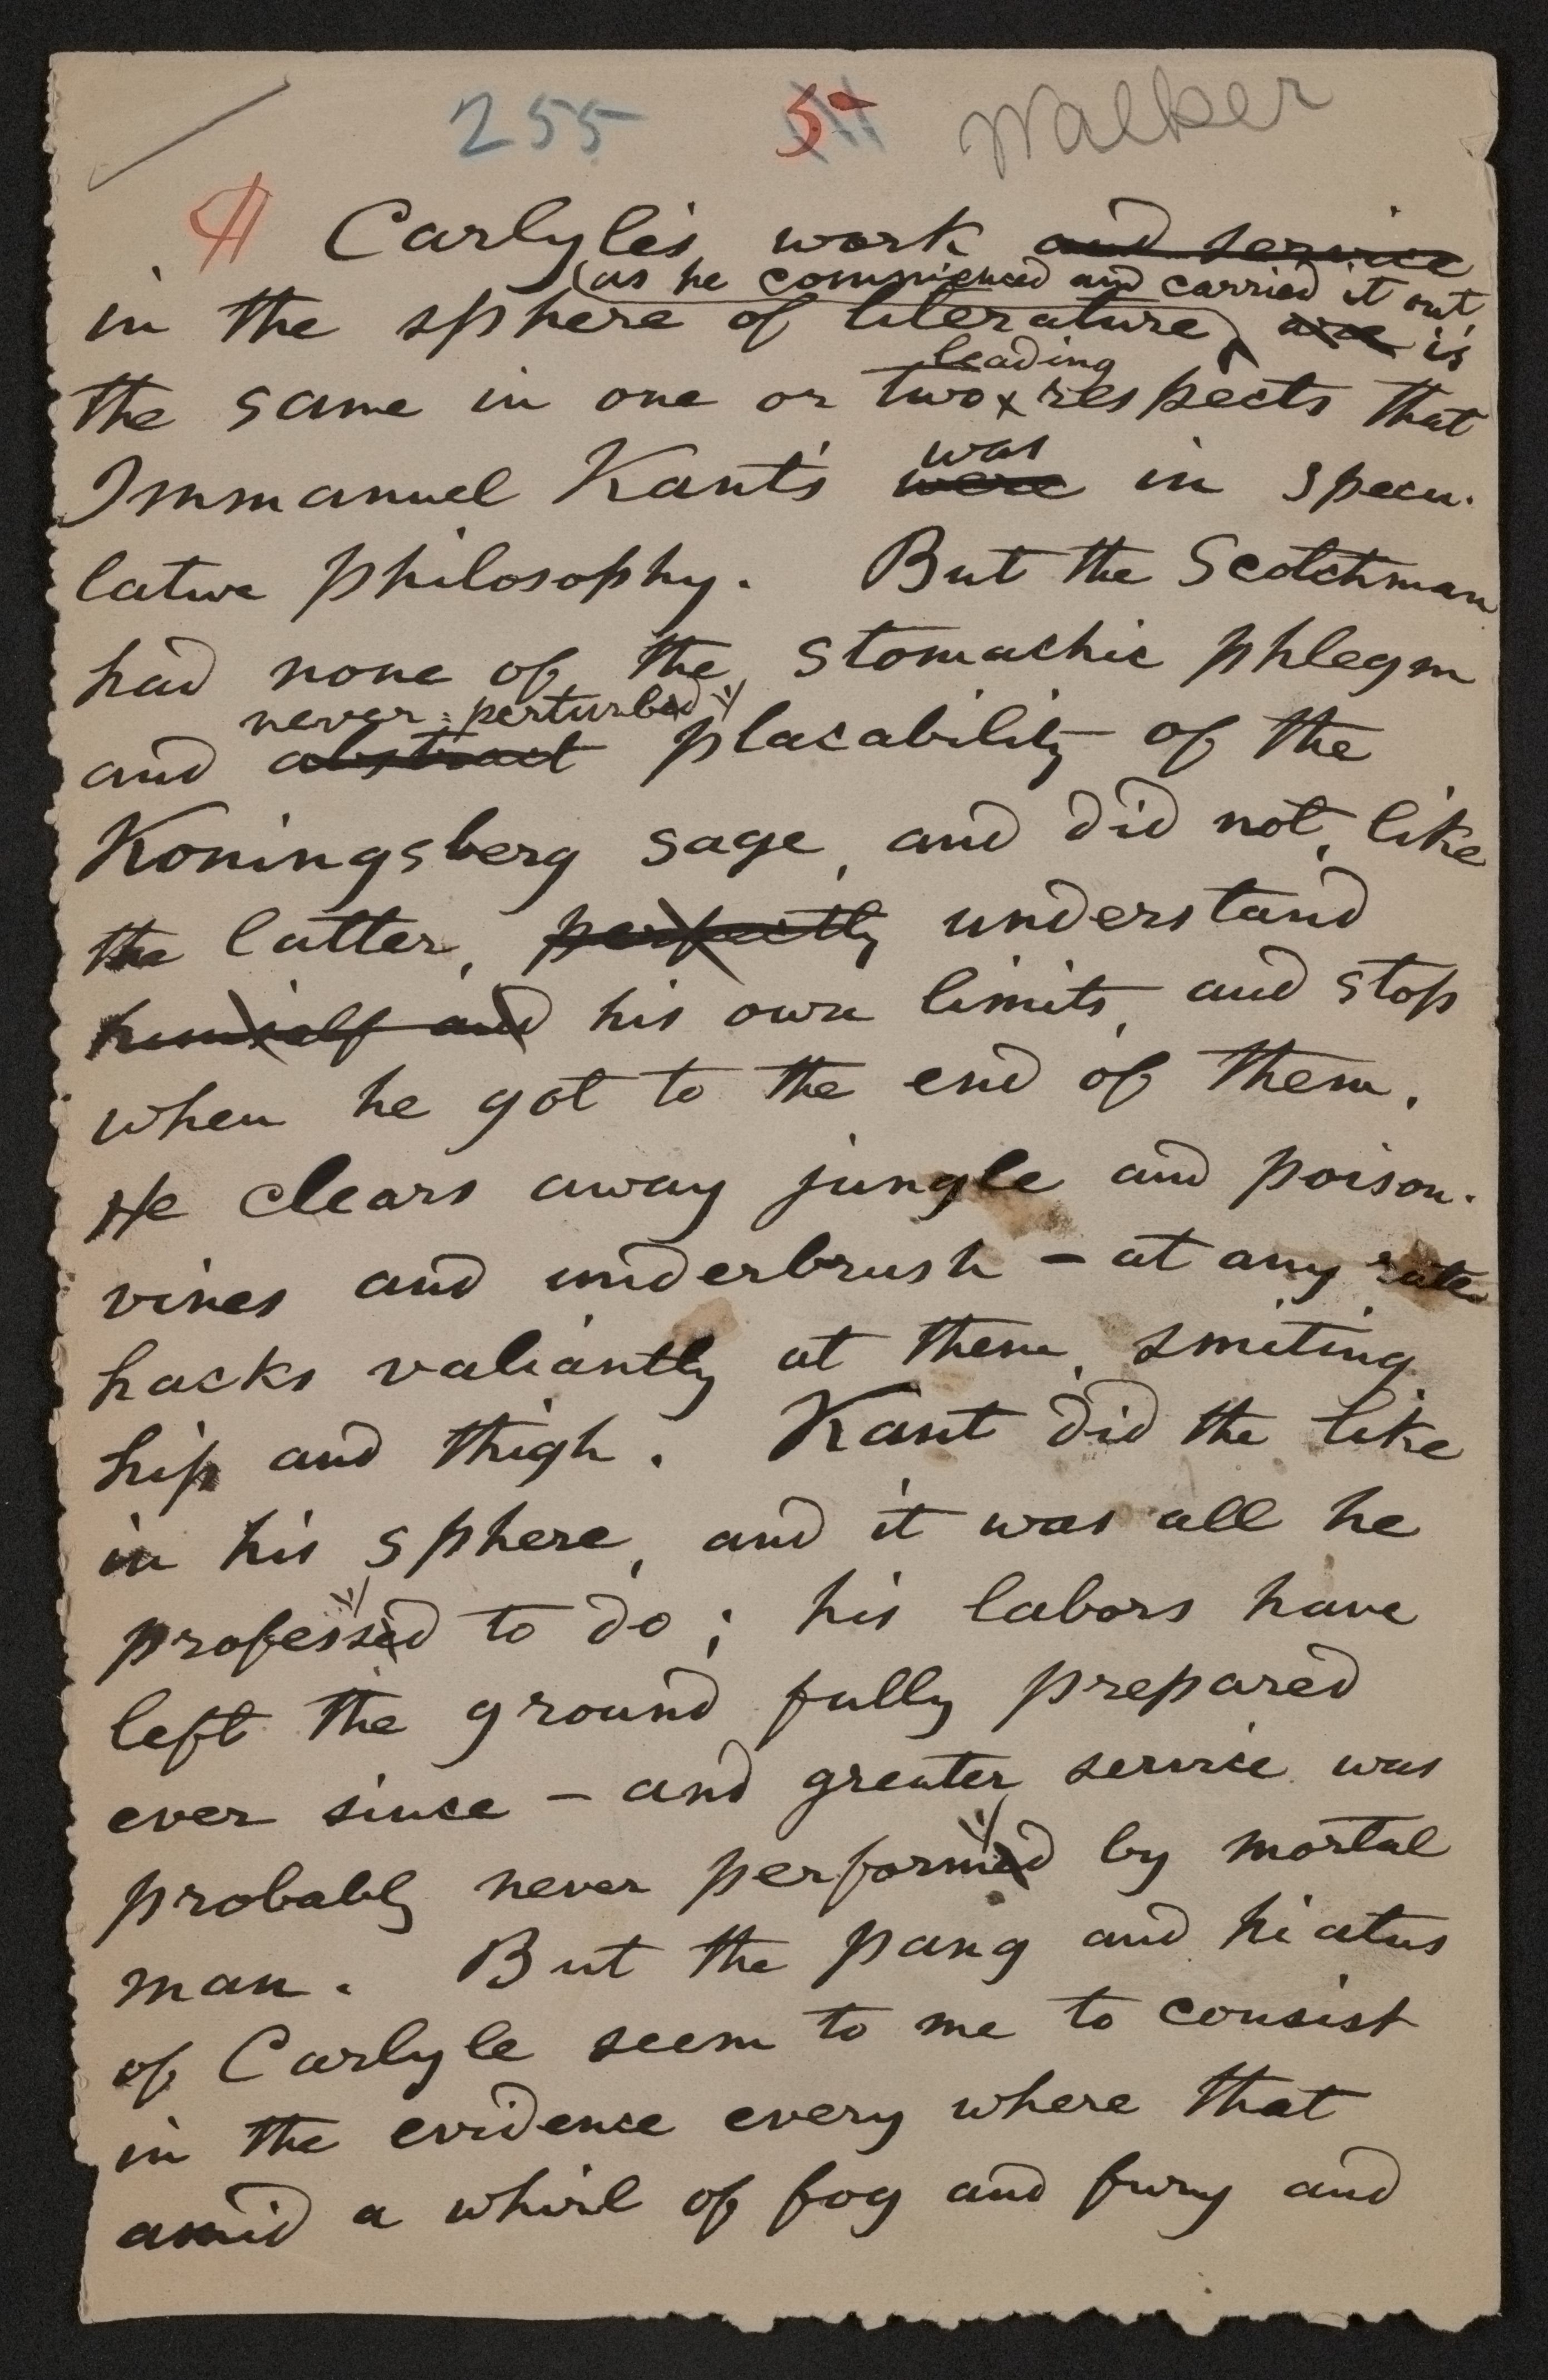 255 5 Walker
¶ Carlyle's work and service
(as he commenced and carried it out
in the sphere of literature, are is
leading
the same in one or two x respects that
was
Immanuel Kant's were in specu-
lative philosophy. But the Scotchman
had none of the stomachic phlegm
never-perturbed
and abstract placability of the
Koningsberg sage, and did not, like
the latter, perfectly understand
himself and his own limits, and stop
when he got to the end of them.
He clears away jungle and poison-
vines and underbrush – at any rate
hacks valiantly at them, smiting
hip and thigh. Kant did the like
in his sphere, and it was all he
professed to do; his labors have
left the ground fully prepared
ever since – and greater service was
probably never performed by mortal
man. But the pang and hiatus
of Carlyle seem to me to consist
in the evidence every where that
amid a whirl of fog and fury and